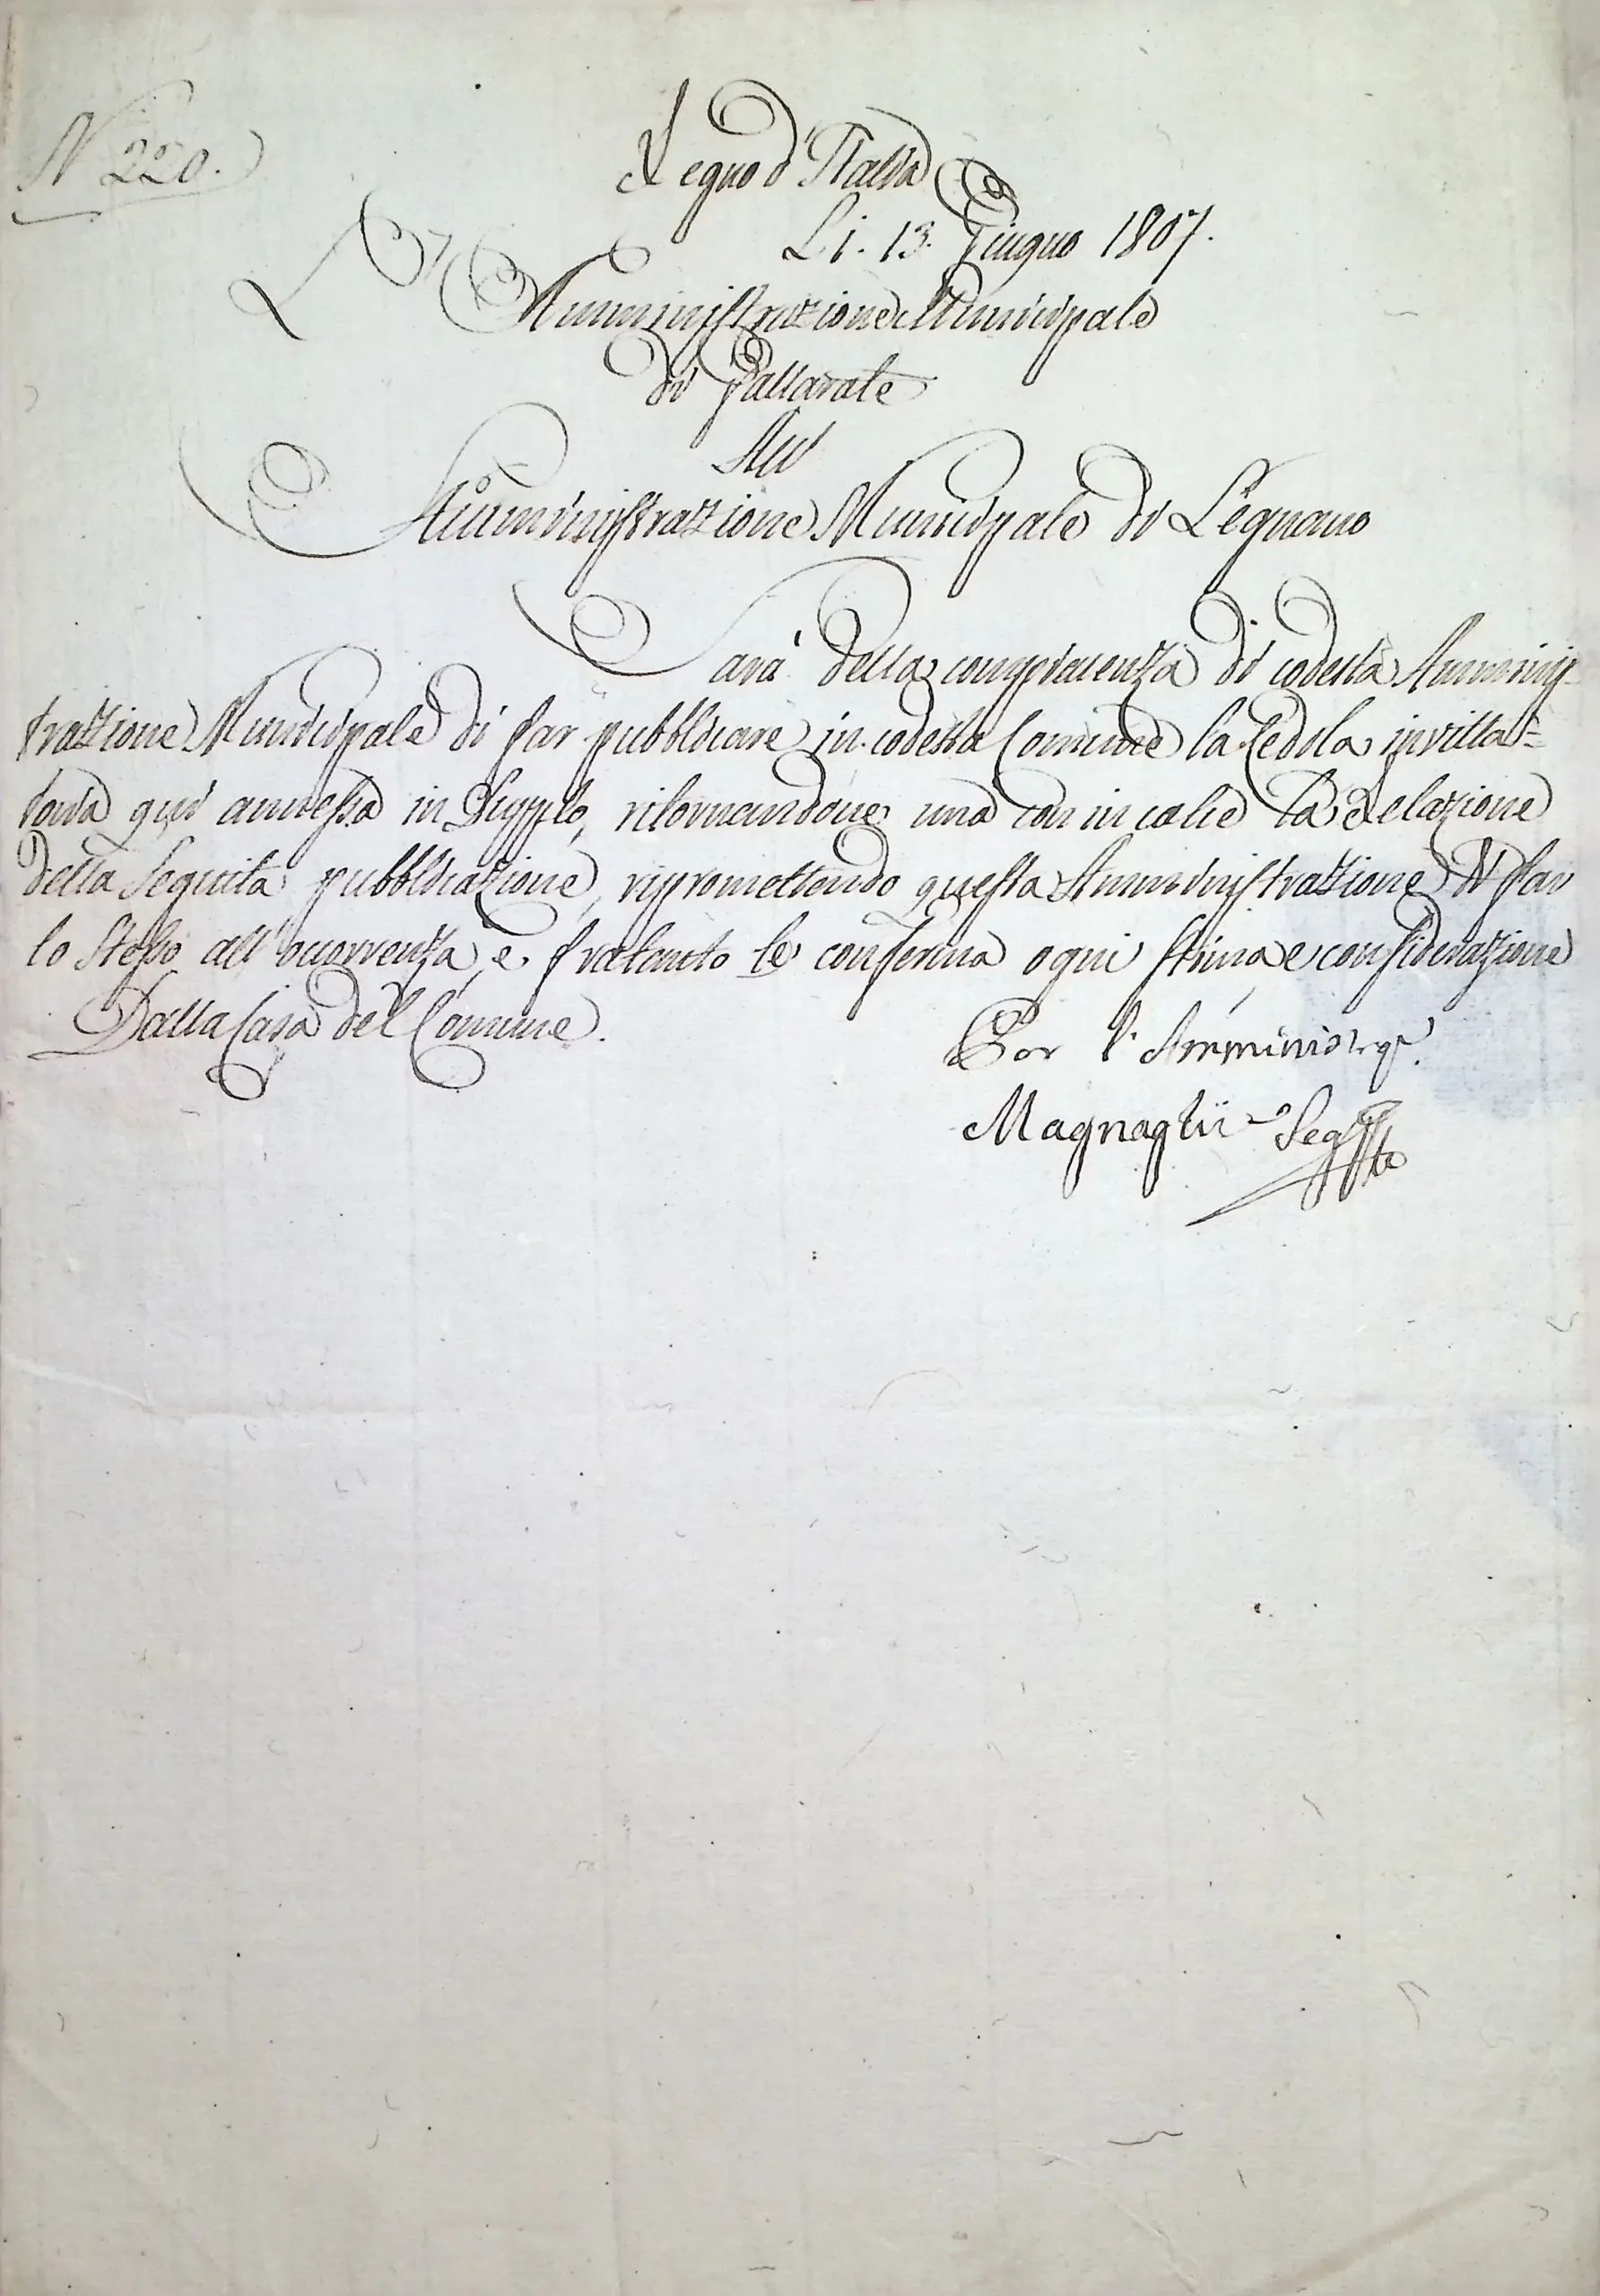 N 220.
Regno d'Italia
Li. 13. Giugno 1807.
L'Amministrazione Municipale
di Gallarate
All'
Amministrazione Municipale di Legnano
Sarà della compiacenza di codesta Amminis-
trazione Municipale di far pubblicare in codesta Comune la Cedola invitta=
toria qui annessa in Dupplo, ritornandone una con in calce la Relazione
della Seguita pubblicazione, ripromettendo questa Amministrazione di far
lo Stesso all'ocorrenza, e fratanto le conferma ogni stima e considerazione
Dalla Casa del Comune.
Per l'Amministrne.
Magnaghi Seg